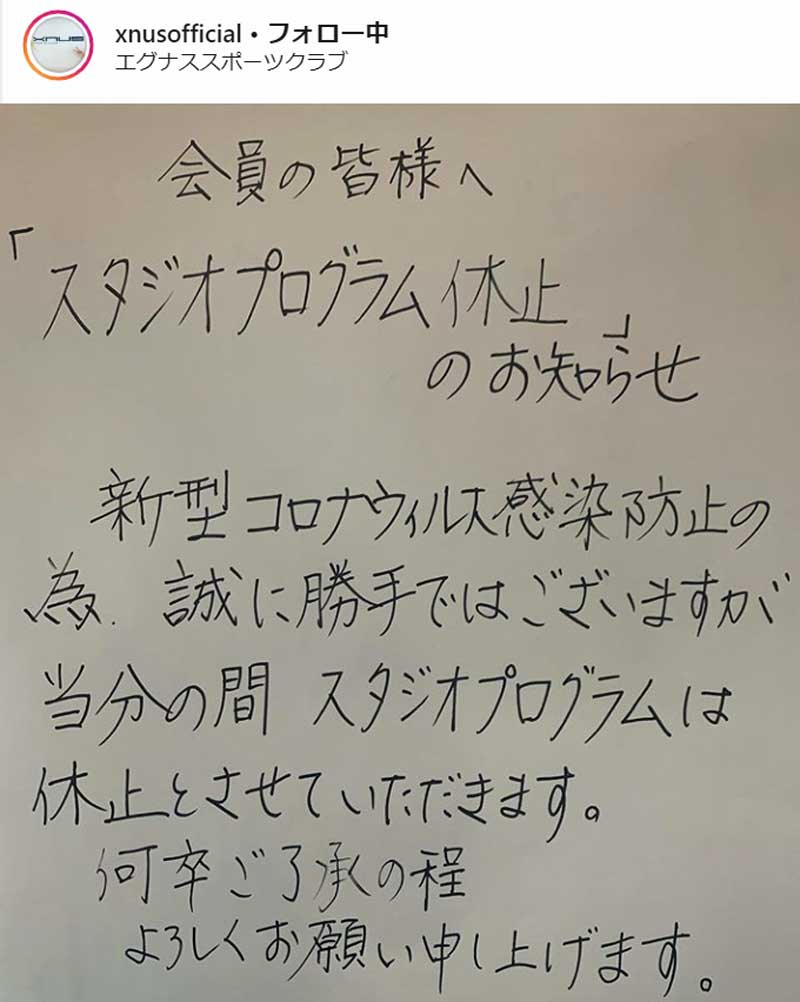 xnus
xnusofficial・フォロー中
エグナススポーツクラブ
会員の皆様へ
「スタジオプログラム休止」
のお知らせ
新型コロナウィルス感染防止の
為. 誠に勝手ではございますが
当分の間 スタジオプログラムは
休止とさせていただきます。
何卒ご了承の程
よろしくお願い申し上げます。